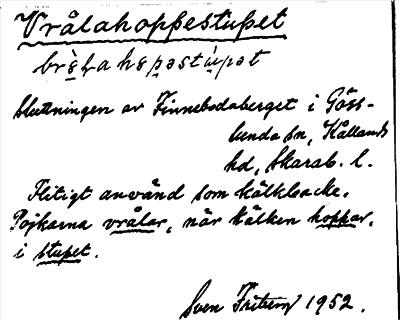 Vrålahoppestupet
sluttningen av Finnebodaberget i Göss-
lunda sn, Kållands
hd, Skarab. l.
Flitigt använd som kälkbacke.
Pojkarna vrålar, när kälken hoppar,
i stupet.
Sven 1952.